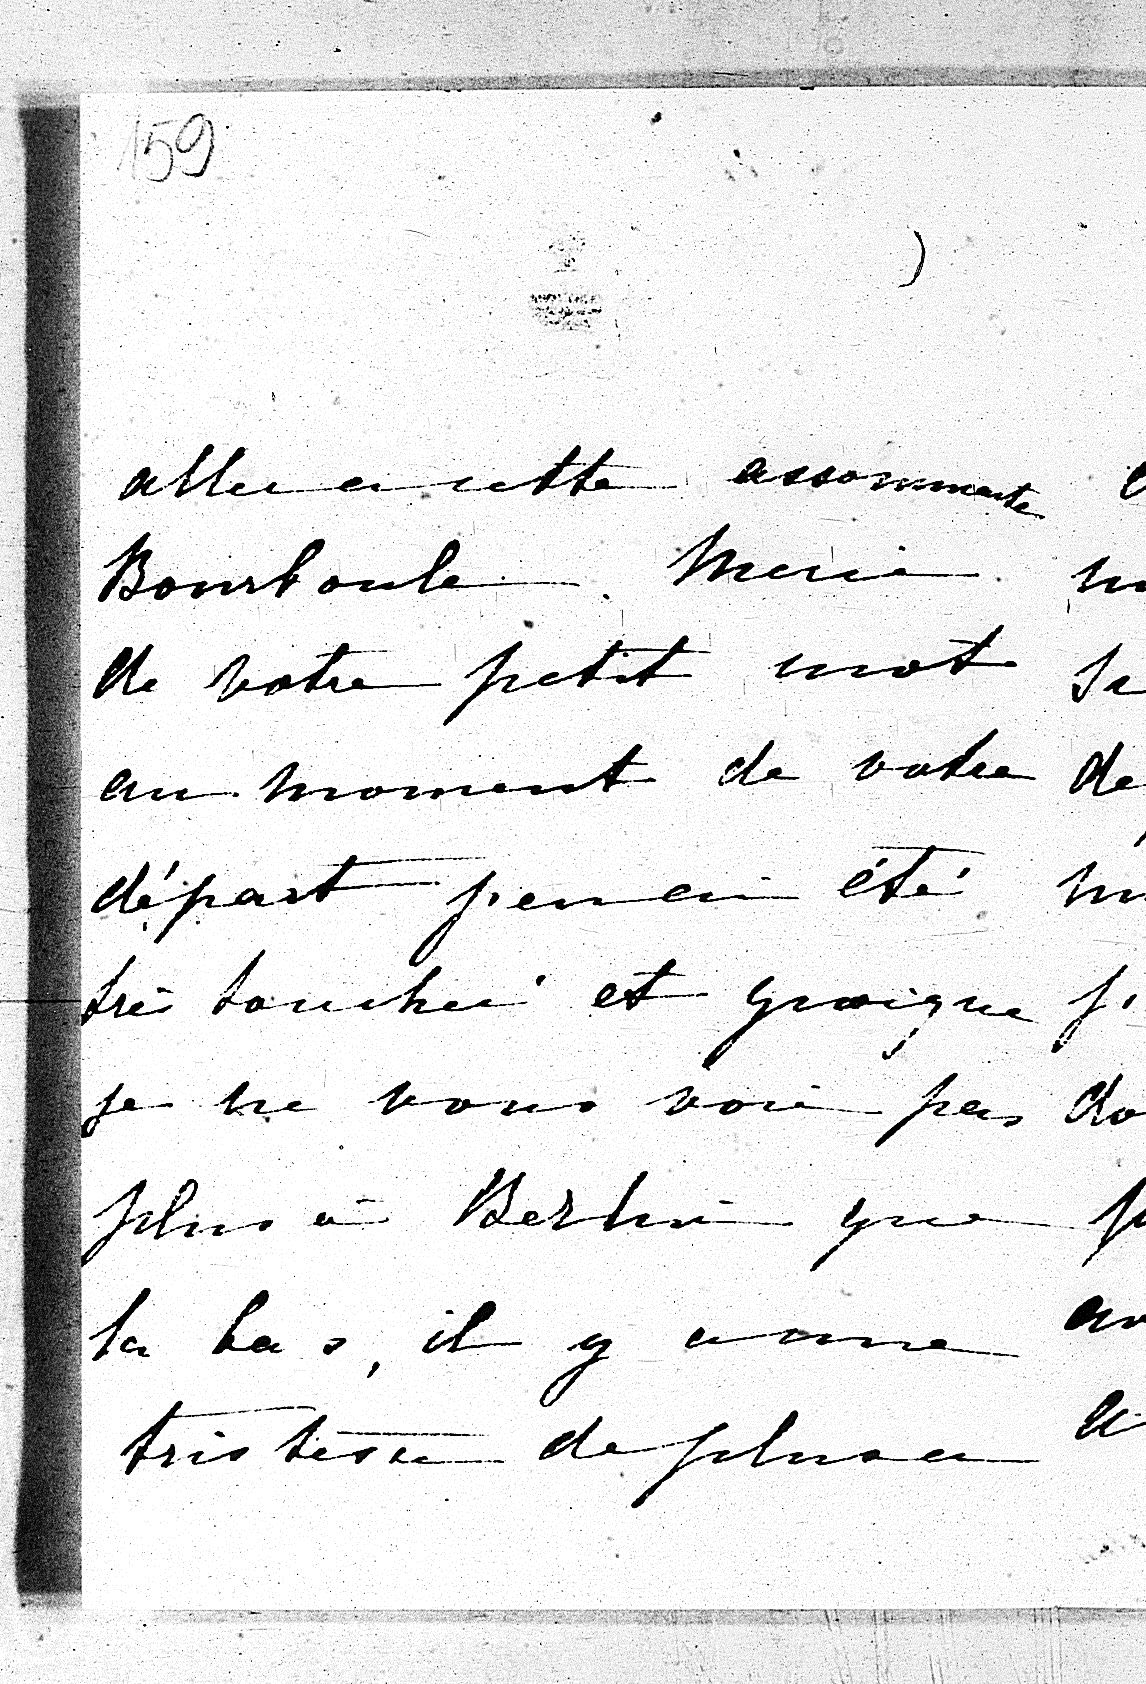 159
aller a cette assommante
Bourboule. Merci
de votre petit mot
au moment de votre
départ j'en ai été
très touchée et quoique
je ne vous voie pas
plus à Berlin que
la bas, il y a une
tristesse de plus a